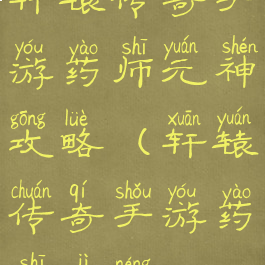 轩辕传奇手
yóu yào shī yuán shén
游药师元神
gōng lüè xuān yuán
攻略（轩辕
chuán qí shǒu yóu yào
传奇手游药
shī jì néng